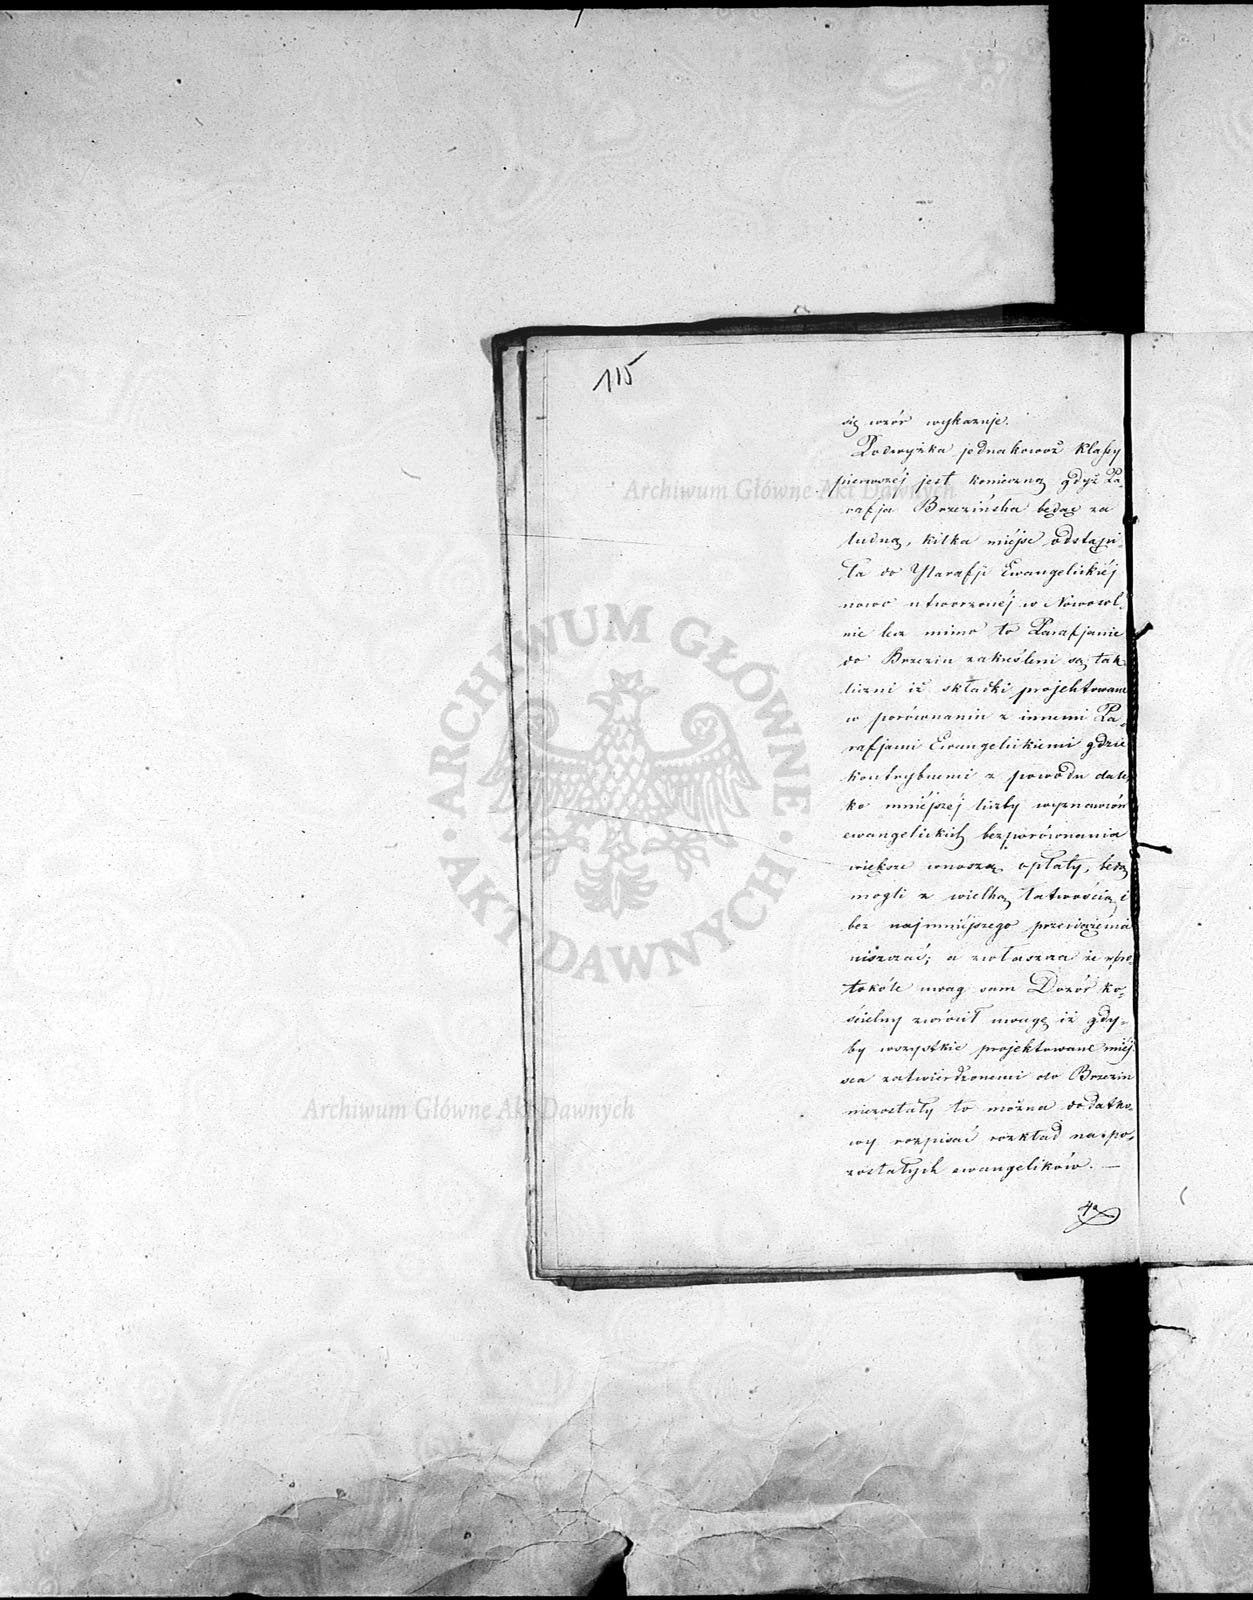 115
się wzór wykazuje.
Podwyżka jednakowoż klassy
pierwszéj jest konieczną gdyż Pa-
rafja Brzezińska będąc za
ludną, kilka miéjsc odstąpi-
ła do Parafji Ewangelickiéj
nowo utworzonéj w Nowosol-
nie lecz mimo to Parafjanie
do Brzezin zakreśleni są tak
liczni iż składki projektowane
w porównaniu z innemi Pa-
rafjami Ewangelickiemi gdzie
kontrybuenci z powodu dale-
ko mniéjszéj liczby wyznawców
ewangelickich bezporównania
większe wnoszą opłaty, będą
mogli z wielką łatwością i
bez najmniéjszego przeciążenia
uiszczać; a zwłaszcza że w pro-
tokóle uwag sam Dozór ko-
ścielny zwrócił uwagę iż gdy-
by wszystkie projektowane miéj-
sca zatwierdzonemi do Brzezin
niezostały to można dodatko-
wy rozpisać rozkład na po-
zostałych ewangelików. —
Archiwum Główne Akt Dawnych
Archiwum Główne Akt Dawnych
ARCHIWUM GŁÓWNE
AKT DAWNYCH